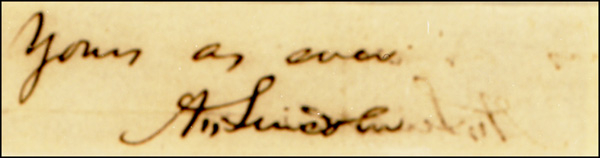 Yours as ever
A. Lincoln